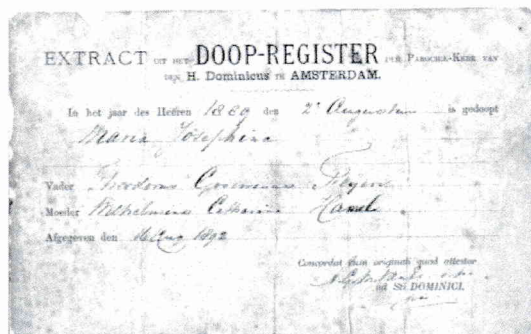 EXTRACT UIT HET DOOP-REGISTER DER PAROCHIE-KERK VAN
DEN H. Dominicus TE AMSTERDAM.
In het jaar des Heeren 1889 den 2e Augustus is gedoopt
Maria Josephina
Vader Theodorus
Moeder Wilhelmina Catharina
Afgegeven den 16 Aug 1892
Concordat cum originali quod attestor
ad Sti DOMINICI,